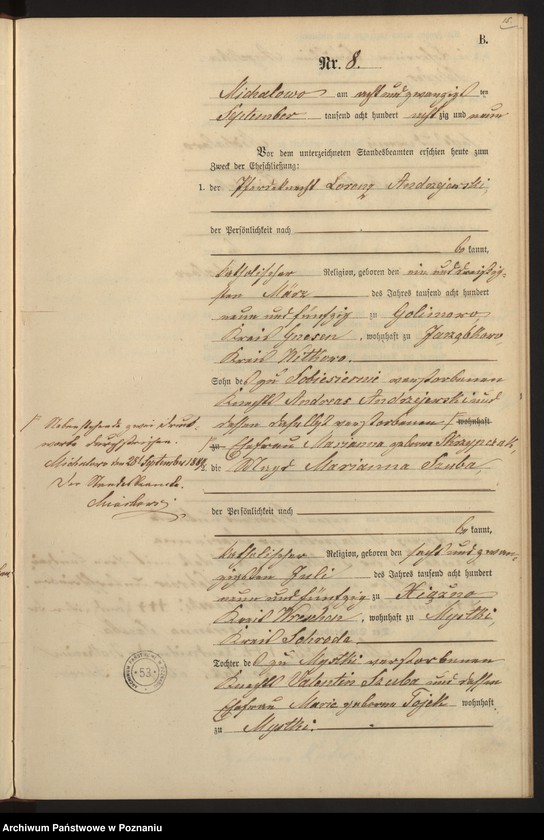 15.
B.
Nr. 8.
Michalowo am acht und zwanzigsten
September tausend acht hundert acht zig und neun
Vor dem unterzeichneten Standesbeamten erschien heute zum
Zweck der Eheschließung:
1. der Pferdeknecht Lorenz Andrzejewski,
der Persönlichkeit nach
be kannt,
katholischer Religion, geboren den ein und dreißig-
sten März des Jahres tausend acht hundert
neun und fünfzig zu Golimowo,
Kreis Gnesen, wohnhaft zu
Kreis Witkowo.
Sohn des zu Sobiesiernie verstorbenen
Knechts Andreas Andrzejewski und
dessen daselbst verstorbenen wohnhaft
zu Ehefrau Marianna geborne Skrzypczak,
2. die Magd Marianna Szuba,
der Persönlichkeit nach
be kannt,
katholischer Religion, geboren den sechs und zwan-
zigsten Juli des Jahres tausend acht hundert
neun und fünfzig zu Xiąžno
Kreis Wreschen, wohnhaft zu Mystki,
Kreis Schroda,
Tochter des zu Mystki verstorbenen
Knechts Valentin Szuba und dessen
Ehefrau Marie geborne Tojek wohnhaft
zu Mystki.
Nebenstehende zwei Druck-
worte durchstrichen.
Michalowo den 28. September 1889.
Der Standesbeamte.
53
Archiwum Państwowe w Poznaniu